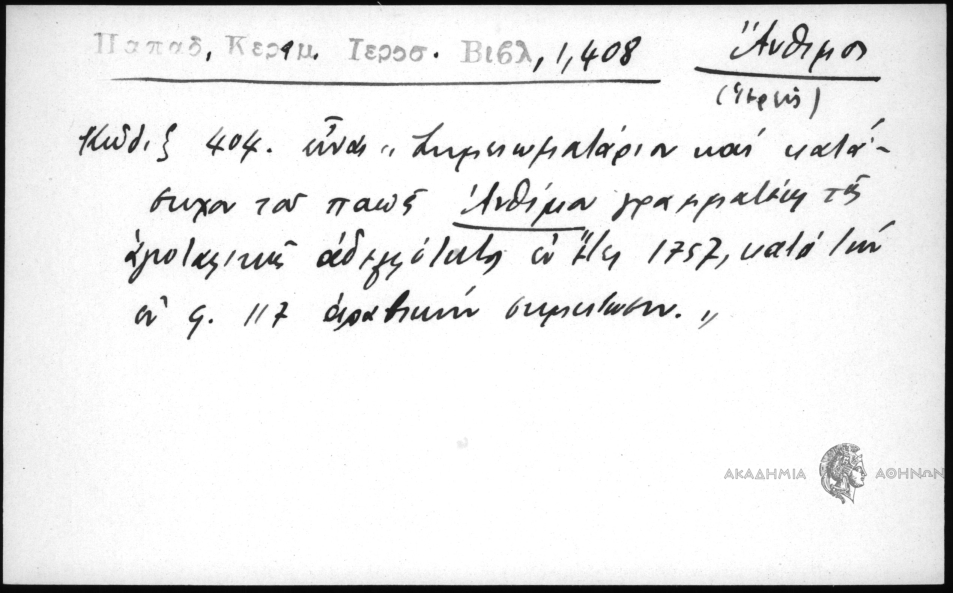 Παπαδ, Κεραμ. Ιεροσ. Βιβλ, 1, 408 Ἄνθιμος
(Ἱερεύς)
Κῶδιξ 404. εἶναι „ Σημειωματάριον καὶ κατά-
στιχον τοῦ παπᾶ Ἀνθίμου γραμματέως τῆς
ἁγιοταφιτικῆς ἀδελφότητος ἐν ἔτει 1757, κατὰ τὴν
ἐν φ. 117 ἀραβικὴν σημείωσιν. „
ΑΚΑΔΗΜΙΑ ΑΘΗΝΩΝ